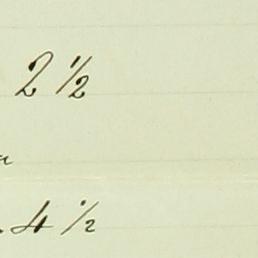 2 ½
4 ½